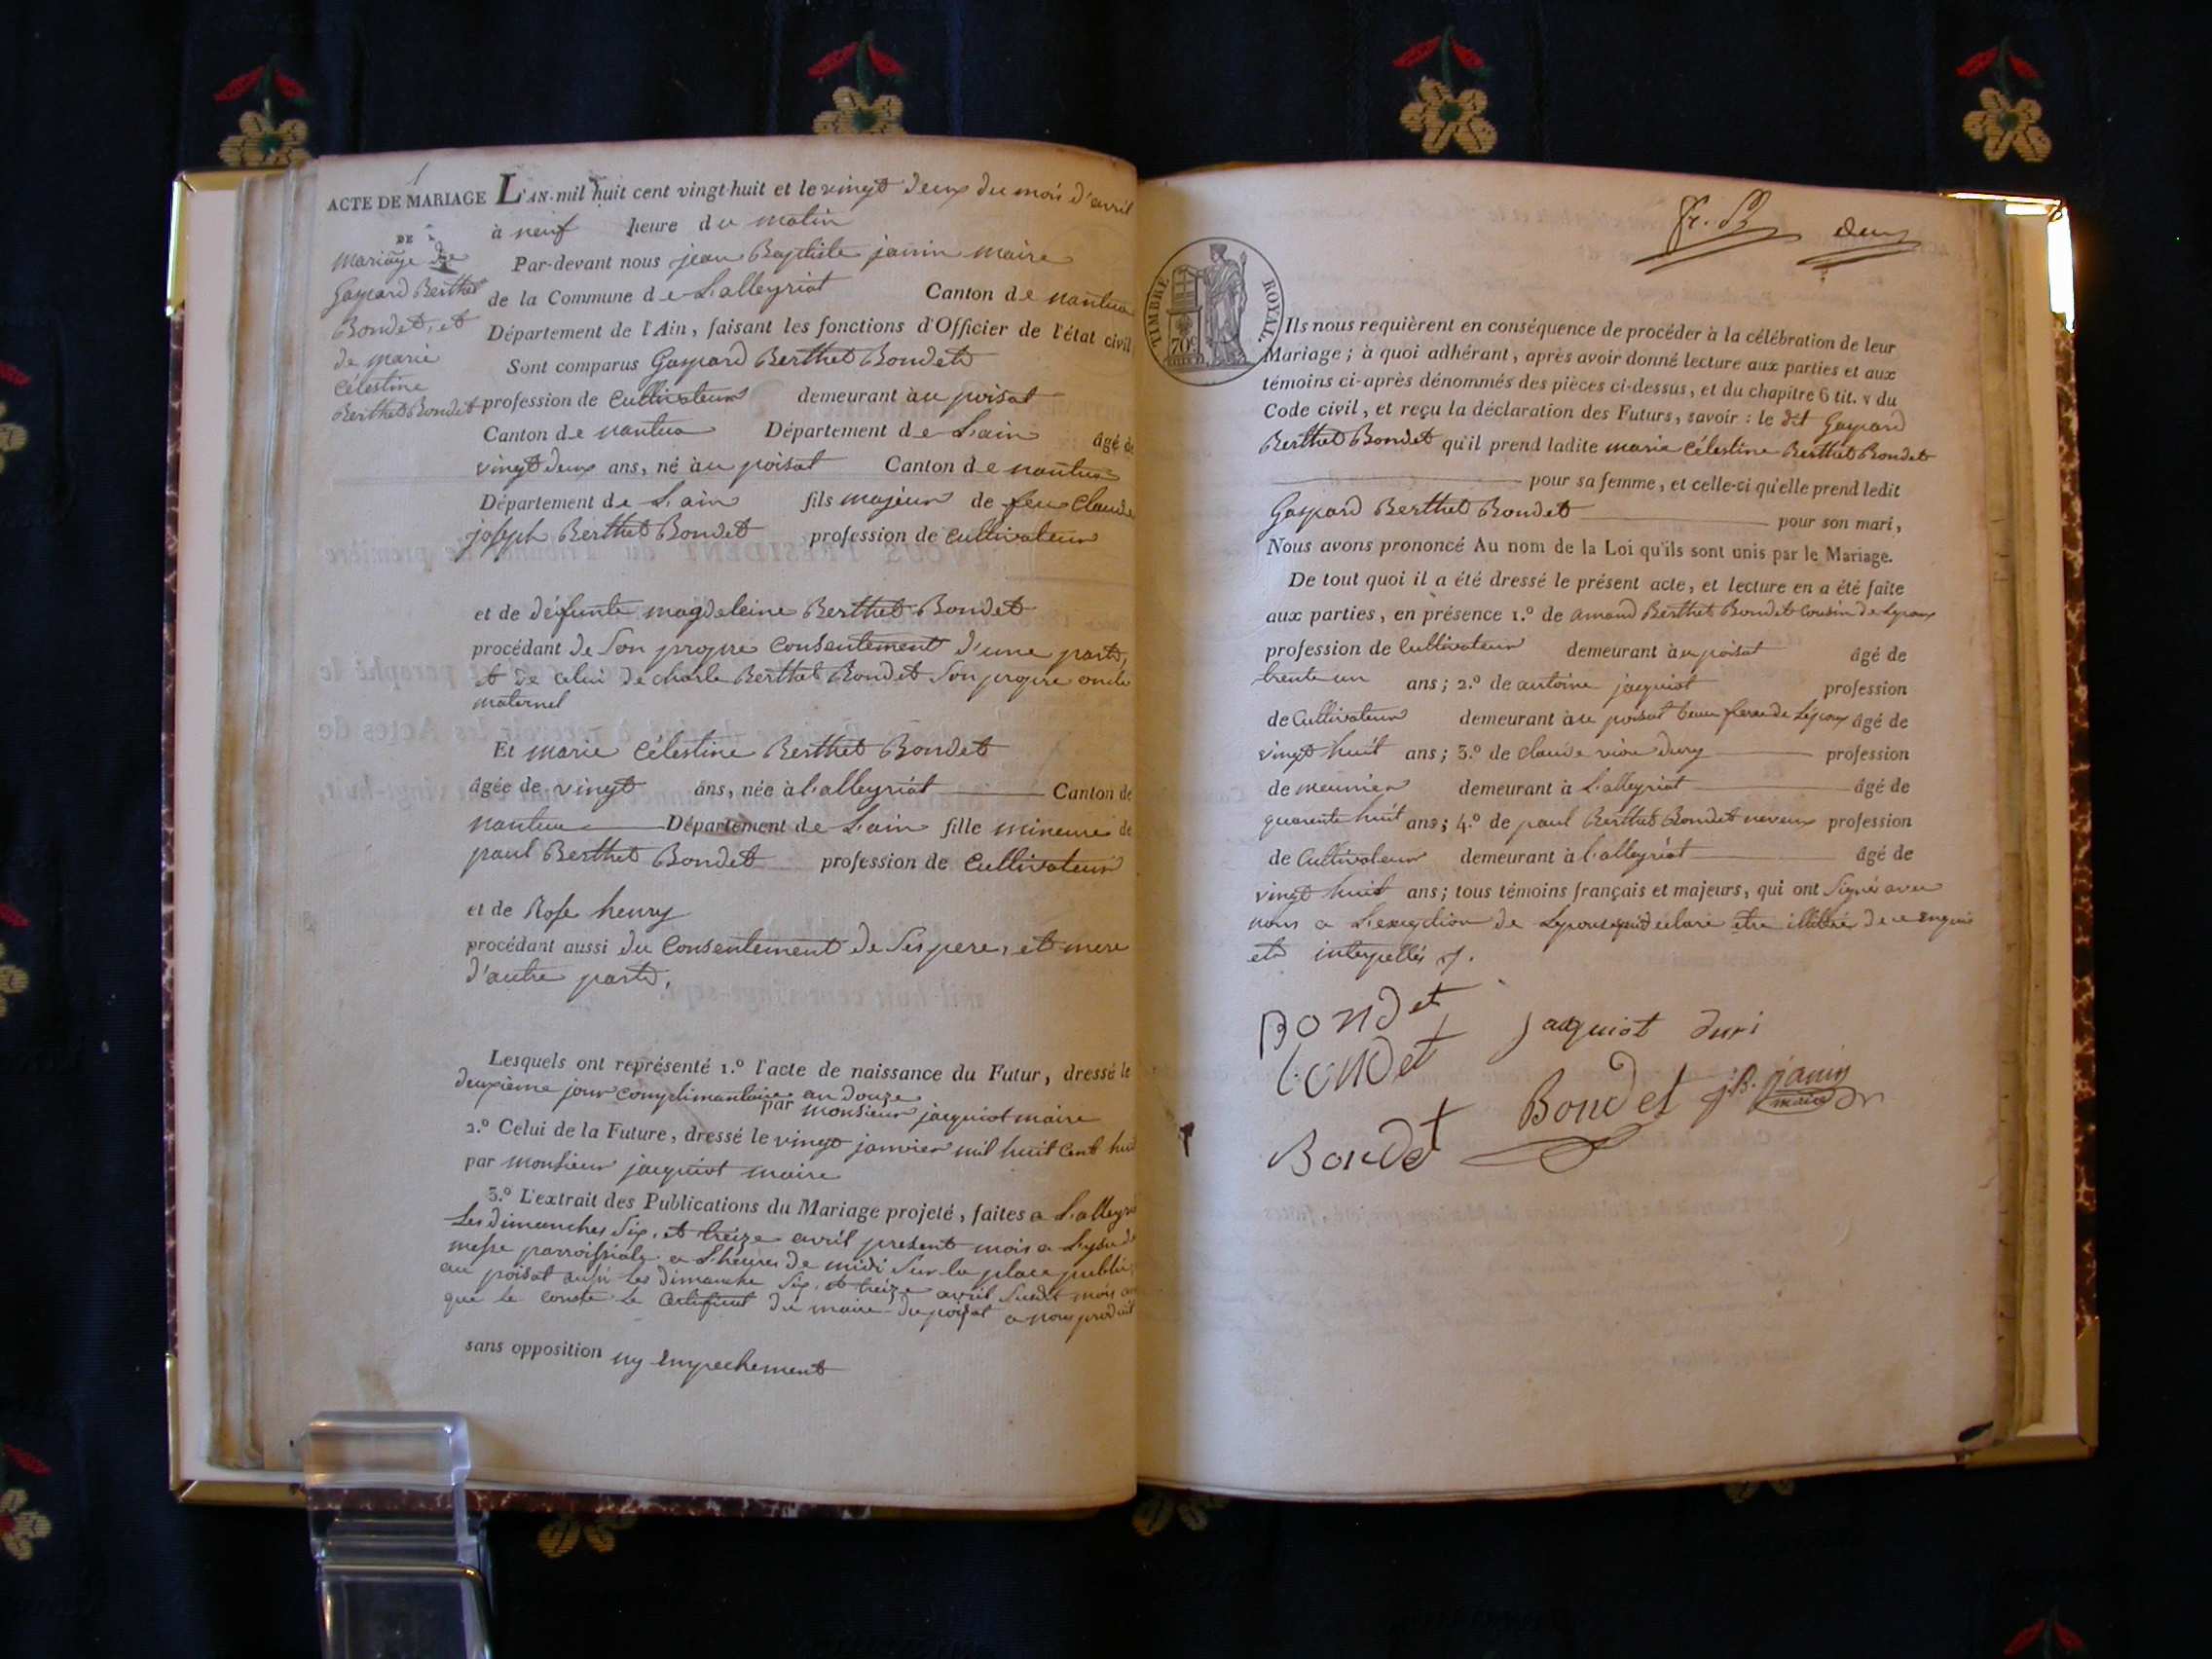 1
ACTE DE MARIAGE
DE
mariage de
Gaspard Berthet
Bondet, et
de marie
célestine
Berthet Bondet
L'AN mil huit cent vingt-huit et le vingt deux du mois d'avril
à neuf heure du matin
Par-devant nous jean Baptiste janin maire
de la Commune de L'alleyriat Canton de nantua
Département de l'Ain, faisant les fonctions d'Officier de l'état civil
Sont comparus Gaspard Berthet Bondet
profession de Cultivateur demeurant àu poisat
Canton de nantua Département de L'ain âgé de
vingt deux ans, né àu poisat Canton de nantua
Département de L'ain fils majeur de feu Claude
joseph Berthet Bondet profession de Cultivateur
et de défunte magdeleine Berthet Bondet
procédant de Son propre Consentement d'une part,
et de celui de charle Berthet Bondet Son propre oncle
maternel
Et marie célestine Berthet Bondet
âgée de vingt ans, née à l'alleyriat Canton de
nantua Département de L'ain fille mineure de
paul Berthet Bondet profession de Cultivateur
et de Rose henry
procédant aussi du Consentement de Ses pere, et mere
d'autre part,
Lesquels ont représenté 1.º l'acte de naissance du Futur, dressé le
deuxième jour complimantaire an douze
par monsieur jacquiot maire
2.º Celui de la Future, dressé le vingt janvier mil huit cent huit
par monsieur jacquiot maire
3.º L'extrait des Publications du Mariage projeté, faites a L'alleyriat
Les dimanches Six, et treize avril present mois a L'issu de
messe parroissiale a L'heure de midi Sur la place publique
au poisat aussi les dimanche Six, et treize avril Susdit mois
que le conste le certificat du maire du poisat a nous produit
sans opposition ny Empechement
deux
TIMBRE ROYAL
70 c
Ils nous requièrent en conséquence de procéder à la célébration de leur
Mariage; à quoi adhérant, après avoir donné lecture aux parties et aux
témoins ci-après dénommés des pièces ci-dessus, et du chapitre 6 tit. v du
Code civil, et reçu la déclaration des Futurs, savoir : le dit Gaspard
Berthet Bondet qu'il prend ladite marie célestine Berthet Bondet
pour sa femme, et celle-ci qu'elle prend ledit
Gaspard Berthet Bondet pour son mari,
Nous avons prononcé Au nom de la Loi qu'ils sont unis par le Mariage.
De tout quoi il a été dressé le présent acte, et lecture en a été faite
aux parties, en présence 1.º de amand Berthet Bondet cousin de Lepoux
profession de Cultivateur demeurant àu poisat âgé de
trente un ans; 2.º de antoine jacquiot profession
de Cultivateur demeurant àu poisat beau frere de Lépoux âgé de
vingt huit ans; 3.º de claude vion dury profession
de meunier demeurant à L'alleyriat âgé de
quarente huit ans; 4.º de paul Berthet Bondet neveux profession
de Cultivateur demeurant à l'alleyriat âgé de
vingt huit ans; tous témoins français et majeurs, qui ont Signé avec
nous a L'exception de Lepouse qui declare etre illittré de ce enquis
et interpellés
Bondet
jacquiot duri
Bondet
Bondet J.B. janin
maire
Bondet